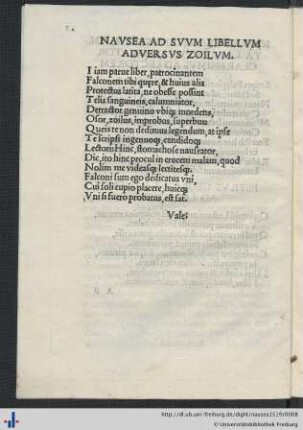 NAVSEA AD SVVM LIBELLVM
ADVERSVS ZOILVM.
I iam parue liber, patrocinantem
Falconem tibi quęre, & huius alis
Protectus latita, ne obesse possint
Telis sanguineis, calumniator,
Detractor genuino vbiq; mordens,
Osor, zoilus, improbus, superbus:
Queis te non dedimus legendum, at ipse
Te scripsi ingenuoq;, candidoq;
Lectori: Hinc, stomachose nauseator,
Dic, ito hinc procul in crucem malam, quod
Nolim me videasq; lectitesq;.
Falconi sum ego dedicatus vni,
Cui soli cupio placere, huicq;
Vni si fuero probatus, est sat.
Vale:
http://dl.ub.uni-freiburg.de/diglit/nausea1519/0008
© Universitätsbibliothek Freiburg